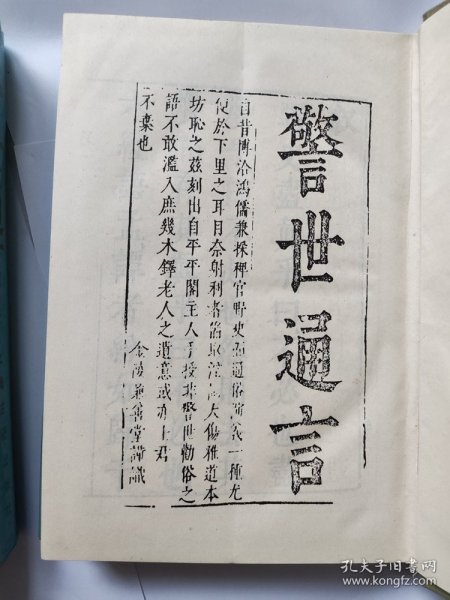 警世通言
自昔博洽鴻儒兼採稗官野史而通俗演義一種尤
便於下里之耳目奈射利者取淫大傷雅道本
坊恥之茲刻出自平平閣主人手授非警世勸俗之
語不敢濫入庶幾木鐸老人之遺意或亦士君
不棄也
金陵兼善堂謹識
孔夫子旧书网
www.kongfz.com